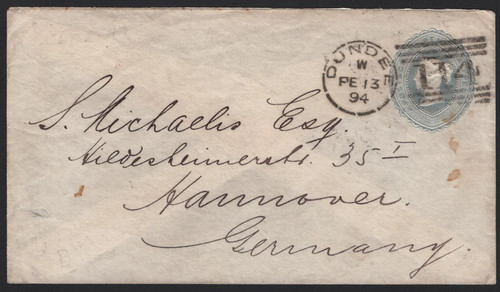 DUNDEE
W
FE 13
94
114
S. Michaelis Esq.
Hildesheimerstr. 35 I
Hannover.
Germany.